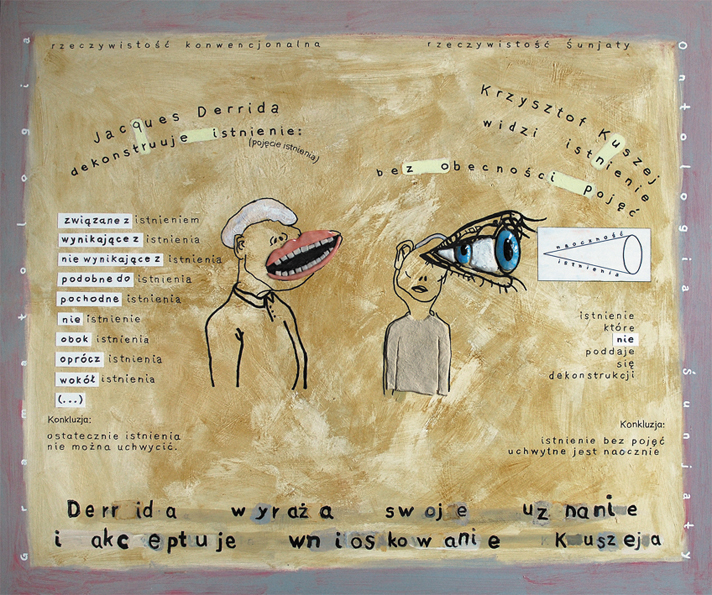 rzeczywistość konwencjonalna
rzeczywistość Śunjaty
Gramatologia
Jacques Derrida
dekonstruuje istnienie:
(pojęcie istnienia)
związane z istnieniem
wynikające z istnienia
nie wynikające z istnienia
podobne do istnienia
pochodne istnienia
nie istnienie
obok istnienia
oprócz istnienia
wokół istnienia
(...)
Konkluzja:
ostatecznie istnienia
nie można uchwycić.
Krzysztof Kuszej
widzi istnienie
bez obecności pojęć
naoczność
istnienia
istnienie
które
nie
poddaje
się
dekonstrukcji
Konkluzja:
istnienie bez pojęć
uchwytne jest naocznie
ontologia Śunjaty
Derrida wyraża swoje uznanie
i akceptuje wnioskowanie Kuszeja